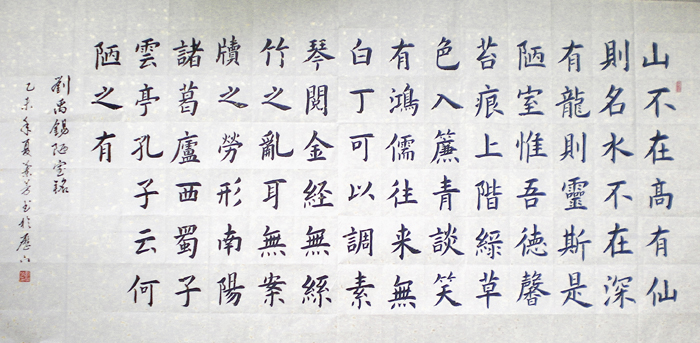 山不在高有仙
則名水不在深
有龍則靈斯是
陋室惟吾德馨
苔痕上階綠草
色入簾青談笑
有鴻儒往来無
白丁可以調素
琴閱金経無絲
竹之亂耳無案
牘之勞形南陽
諸葛廬西蜀子
雲亭孔子云何
陋之有
劉禹錫陋室銘
乙未年夏书於